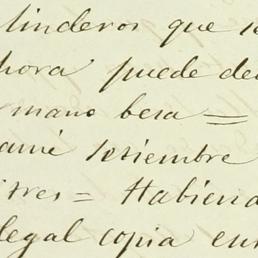 linderos que se
hora puede de
rmano besa =
amé setiembre
tres = Habiend
legal copia en